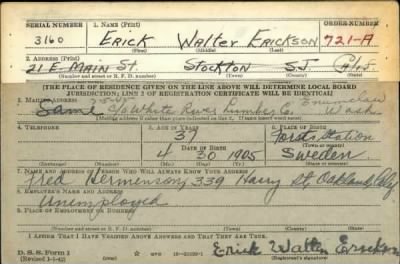 SERIAL NUMBER 1. NAME (Print) ORDER NUMBER
3160 Erick Walter Erickson 721-A
(First) (Middle) (Last)
2. ADDRESS (Print)
21 E. Main St. Stockton S.J.
(Number and street or R. F. D. number) (Town) (County) (State)
[THE PLACE OF RESIDENCE GIVEN ON THE LINE ABOVE WILL DETERMINE LOCAL BOARD
JURISDICTION; LINE 2 OF REGISTRATION CERTIFICATE WILL BE IDENTICAL]
3. MAILING ADDRESS
Same c/o White River Lumber Co. Enumclaw Wash.
[Mailing address if other than place indicated on line 2. If same insert word same]
4. TELEPHONE 5. AGE IN YEARS 6. PLACE OF BIRTH
37
DATE OF BIRTH (Town or county)
4 30 1905 Sweden
(Mo.) (Day) (Yr.) (State or country)
7. NAME AND ADDRESS OF PERSON WHO WILL ALWAYS KNOW YOUR ADDRESS
Fred Hermenson, 339 St, Oakland,
8. EMPLOYER'S NAME AND ADDRESS
Unemployed
9. PLACE OF EMPLOYMENT OR BUSINESS
(Number and street or R. F. D. number) (Town) (County) (State)
I AFFIRM THAT I HAVE VERIFIED ABOVE ANSWERS AND THAT THEY ARE TRUE.
D. S. S. Form 1
(Revised 1-1-42) Erick Walter Erickson
(Registrant's signature)